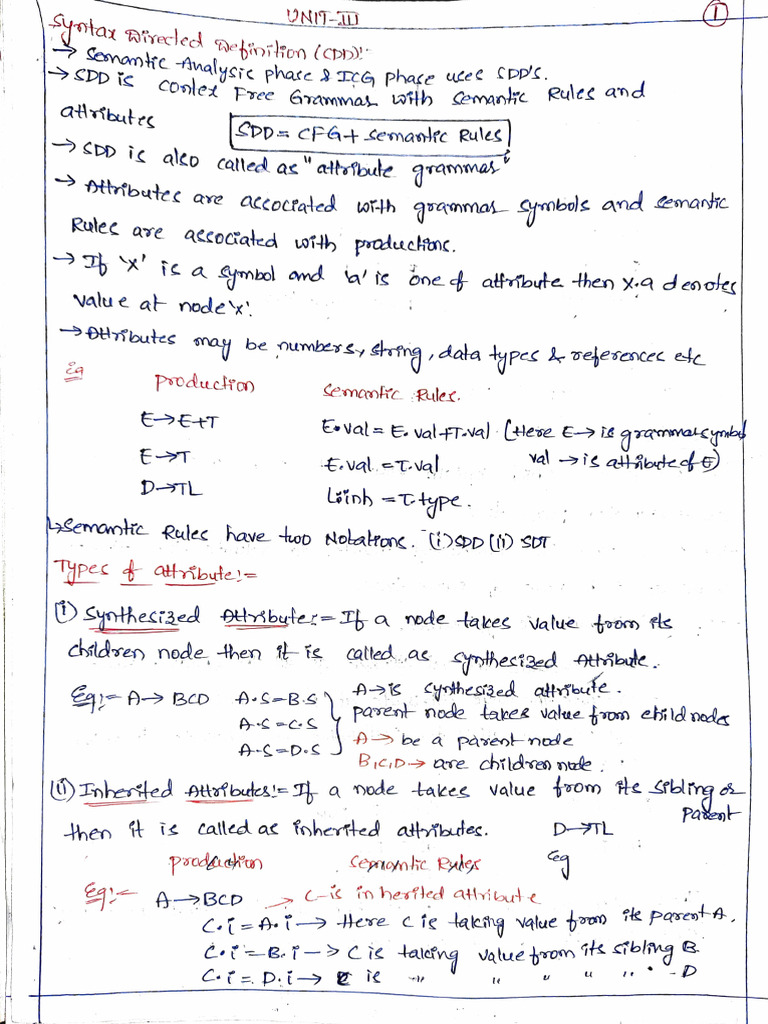 UNIT-III
1
Syntax Directed Definition (CDD):-
→ Semantic Analysic phase & ICG phase uses SDD's.
→ SDD is contex Free Grammar with semantic Rules and
attributes
SDD = CFG + semantic Rules
→ SDD is also called as "attribute grammar"
→ Attributes are associated with grammar symbols and semantic
Rules are associated with productions.
→ If 'x' is a symbol and 'a' is one of attribute then x.a denotes
value at node 'x'.
→ Attributes may be numbers, string, data types & references etc
Eg production semantic Rules.
E→E+T E.val = E.val+T.val (Here E→ is grammar symbol
E→T E.val = T.val val → is attribute of E)
D→TL L.inh = T.type.
↳ Semantic Rules have two Notations. (i) SDD (ii) SDT
Types of attribute:-
(i) Synthesized Attribute:- If a node takes value from its
children node, then it is called as synthesized Attribute.
Eg:- A→ BCD A.S = B.S A→ is synthesized attribute.
A.S = C.S parent node takes value from child nodes
A.S = D.S A→ be a parent node
B,C,D→ are children node.
(ii) Inherited Attributes:- If a node takes value from its sibling or
parent
then it is called as inherited attributes. D→TL
production semantic Rules Eg
Eg:- A→BCD → C-is inherited attribute
C.i = A.i → Here C is taking value from its parent A.
C.i = B.i → C is taking value from its sibling B.
C.i = D.i → C is " " " " " . D